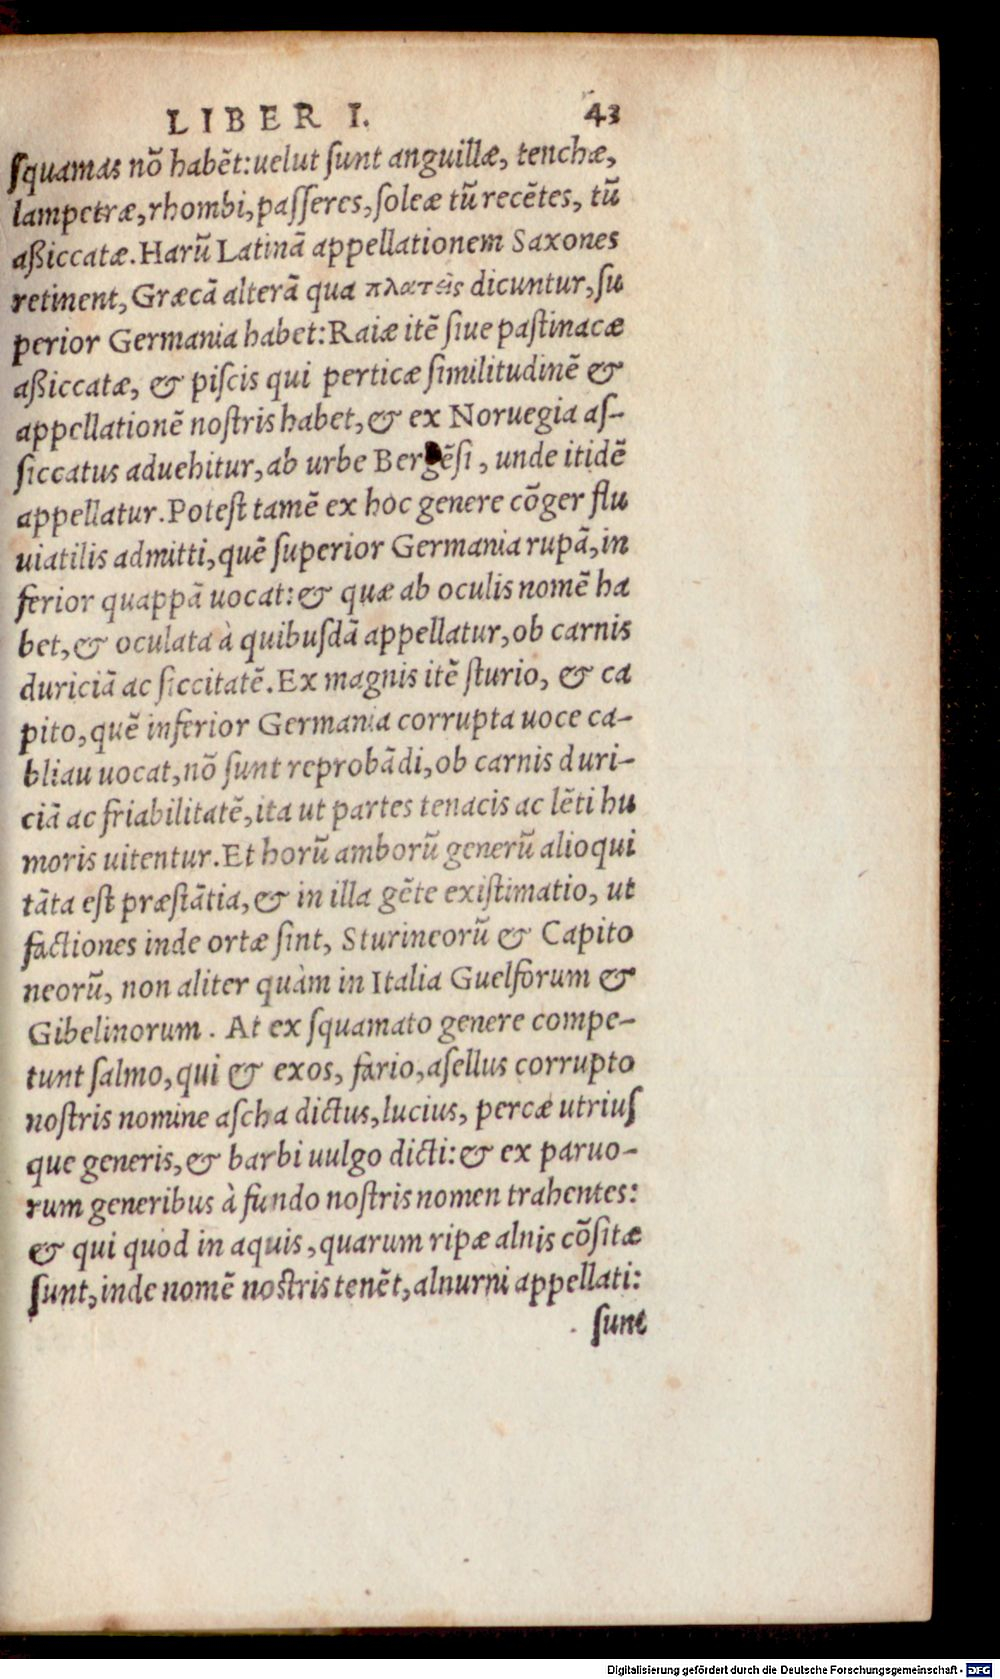 LIBER I. 43
ſquamas nō habēt:uelut ſunt anguillæ, tenchæ,
lampetræ,rhombi,paſſeres,ſoleæ tū recētes, tū
aßiccatæ.Harū Latinā appellationem Saxones
retinent,Græcā alterā qua πλατεῖς dicuntur,ſu
perior Germania habet:Raiæ itē ſiue paſtinacæ
aßiccatæ, & piſcis qui perticæ ſimilitudinē &
appellationē noſtris habet,& ex Noruegia aſ-
ſiccatus aduehitur,ab urbe Bergēſi, unde itidē
appellatur.Poteſt tamē ex hoc genere cōger flu
uiatilis admitti,quē ſuperior Germania rupā,in
ferior quappā uocat:& quæ ab oculis nomē ha
bet,& oculata à quibuſdā appellatur,ob carnis
duriciā ac ſiccitatē.Ex magnis itē ſturio, & ca
pito,quē inferior Germania corrupta uoce ca-
bliau uocat,nō ſunt reprobādi,ob carnis duri-
ciā ac friabilitatē,ita ut partes tenacis ac lēti hu
moris uitentur.Et horū amborū generū alioqui
tāta eſt præſtātia,& in illa gēte exiſtimatio, ut
factiones inde ortæ ſint, Sturineorū & Capito
neorū, non aliter quàm in Italia Guelforum &
Gibelinorum. At ex ſquamato genere compe-
tunt ſalmo,qui & exos, fario,aſellus corrupto
noſtris nomine aſcha dictus,lucius, percæ utriuſ
que generis,& barbi uulgo dicti:& ex paruo-
rum generibus à fundo noſtris nomen trahentes:
& qui quod in aquis,quarum ripæ alnis cōſitæ
ſunt,inde nomē noſtris tenēt,alnurni appellati:
ſunt
Digitalisierung gefördert durch die Deutsche Forschungsgemeinschaft - DFG